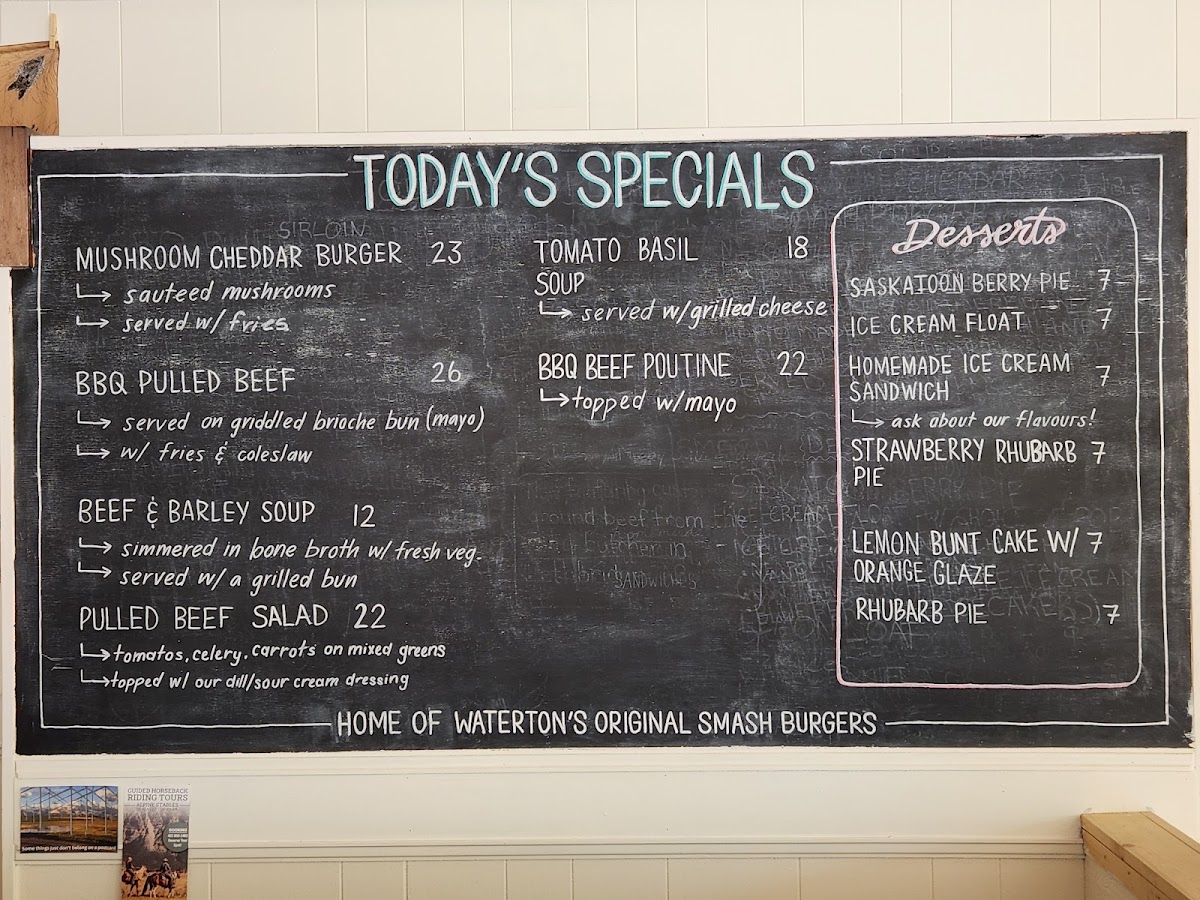 TODAY'S SPECIALS
SIRLOIN
MUSHROOM CHEDDAR BURGER 23
sauteed mushrooms
served w/ fries
BBQ PULLED BEEF 26
served on griddled brioche bun (mayo)
w/ fries & coleslaw
BEEF & BARLEY SOUP 12
simmered in bone broth w/ fresh veg.
served w/ a grilled bun
PULLED BEEF SALAD 22
tomatos, celery, carrots on mixed greens
topped w/ our dill/sour cream dressing
TOMATO BASIL 18
SOUP
served w/grilled cheese
BBQ BEEF POUTINE 22
topped w/mayo
Desserts
SASKATOON BERRY PIE 7
ICE CREAM FLOAT 7
HOMEMADE ICE CREAM
SANDWICH 7
ask about our flavours!
STRAWBERRY RHUBARB 7
PIE
LEMON BUNT CAKE W/ 7
ORANGE GLAZE
RHUBARB PIE 7
HOME OF WATERTON'S ORIGINAL SMASH BURGERS
Some things just don't belong on a postcard
GUIDED HORSEBACK
RIDING TOURS
ALPINE STABLES